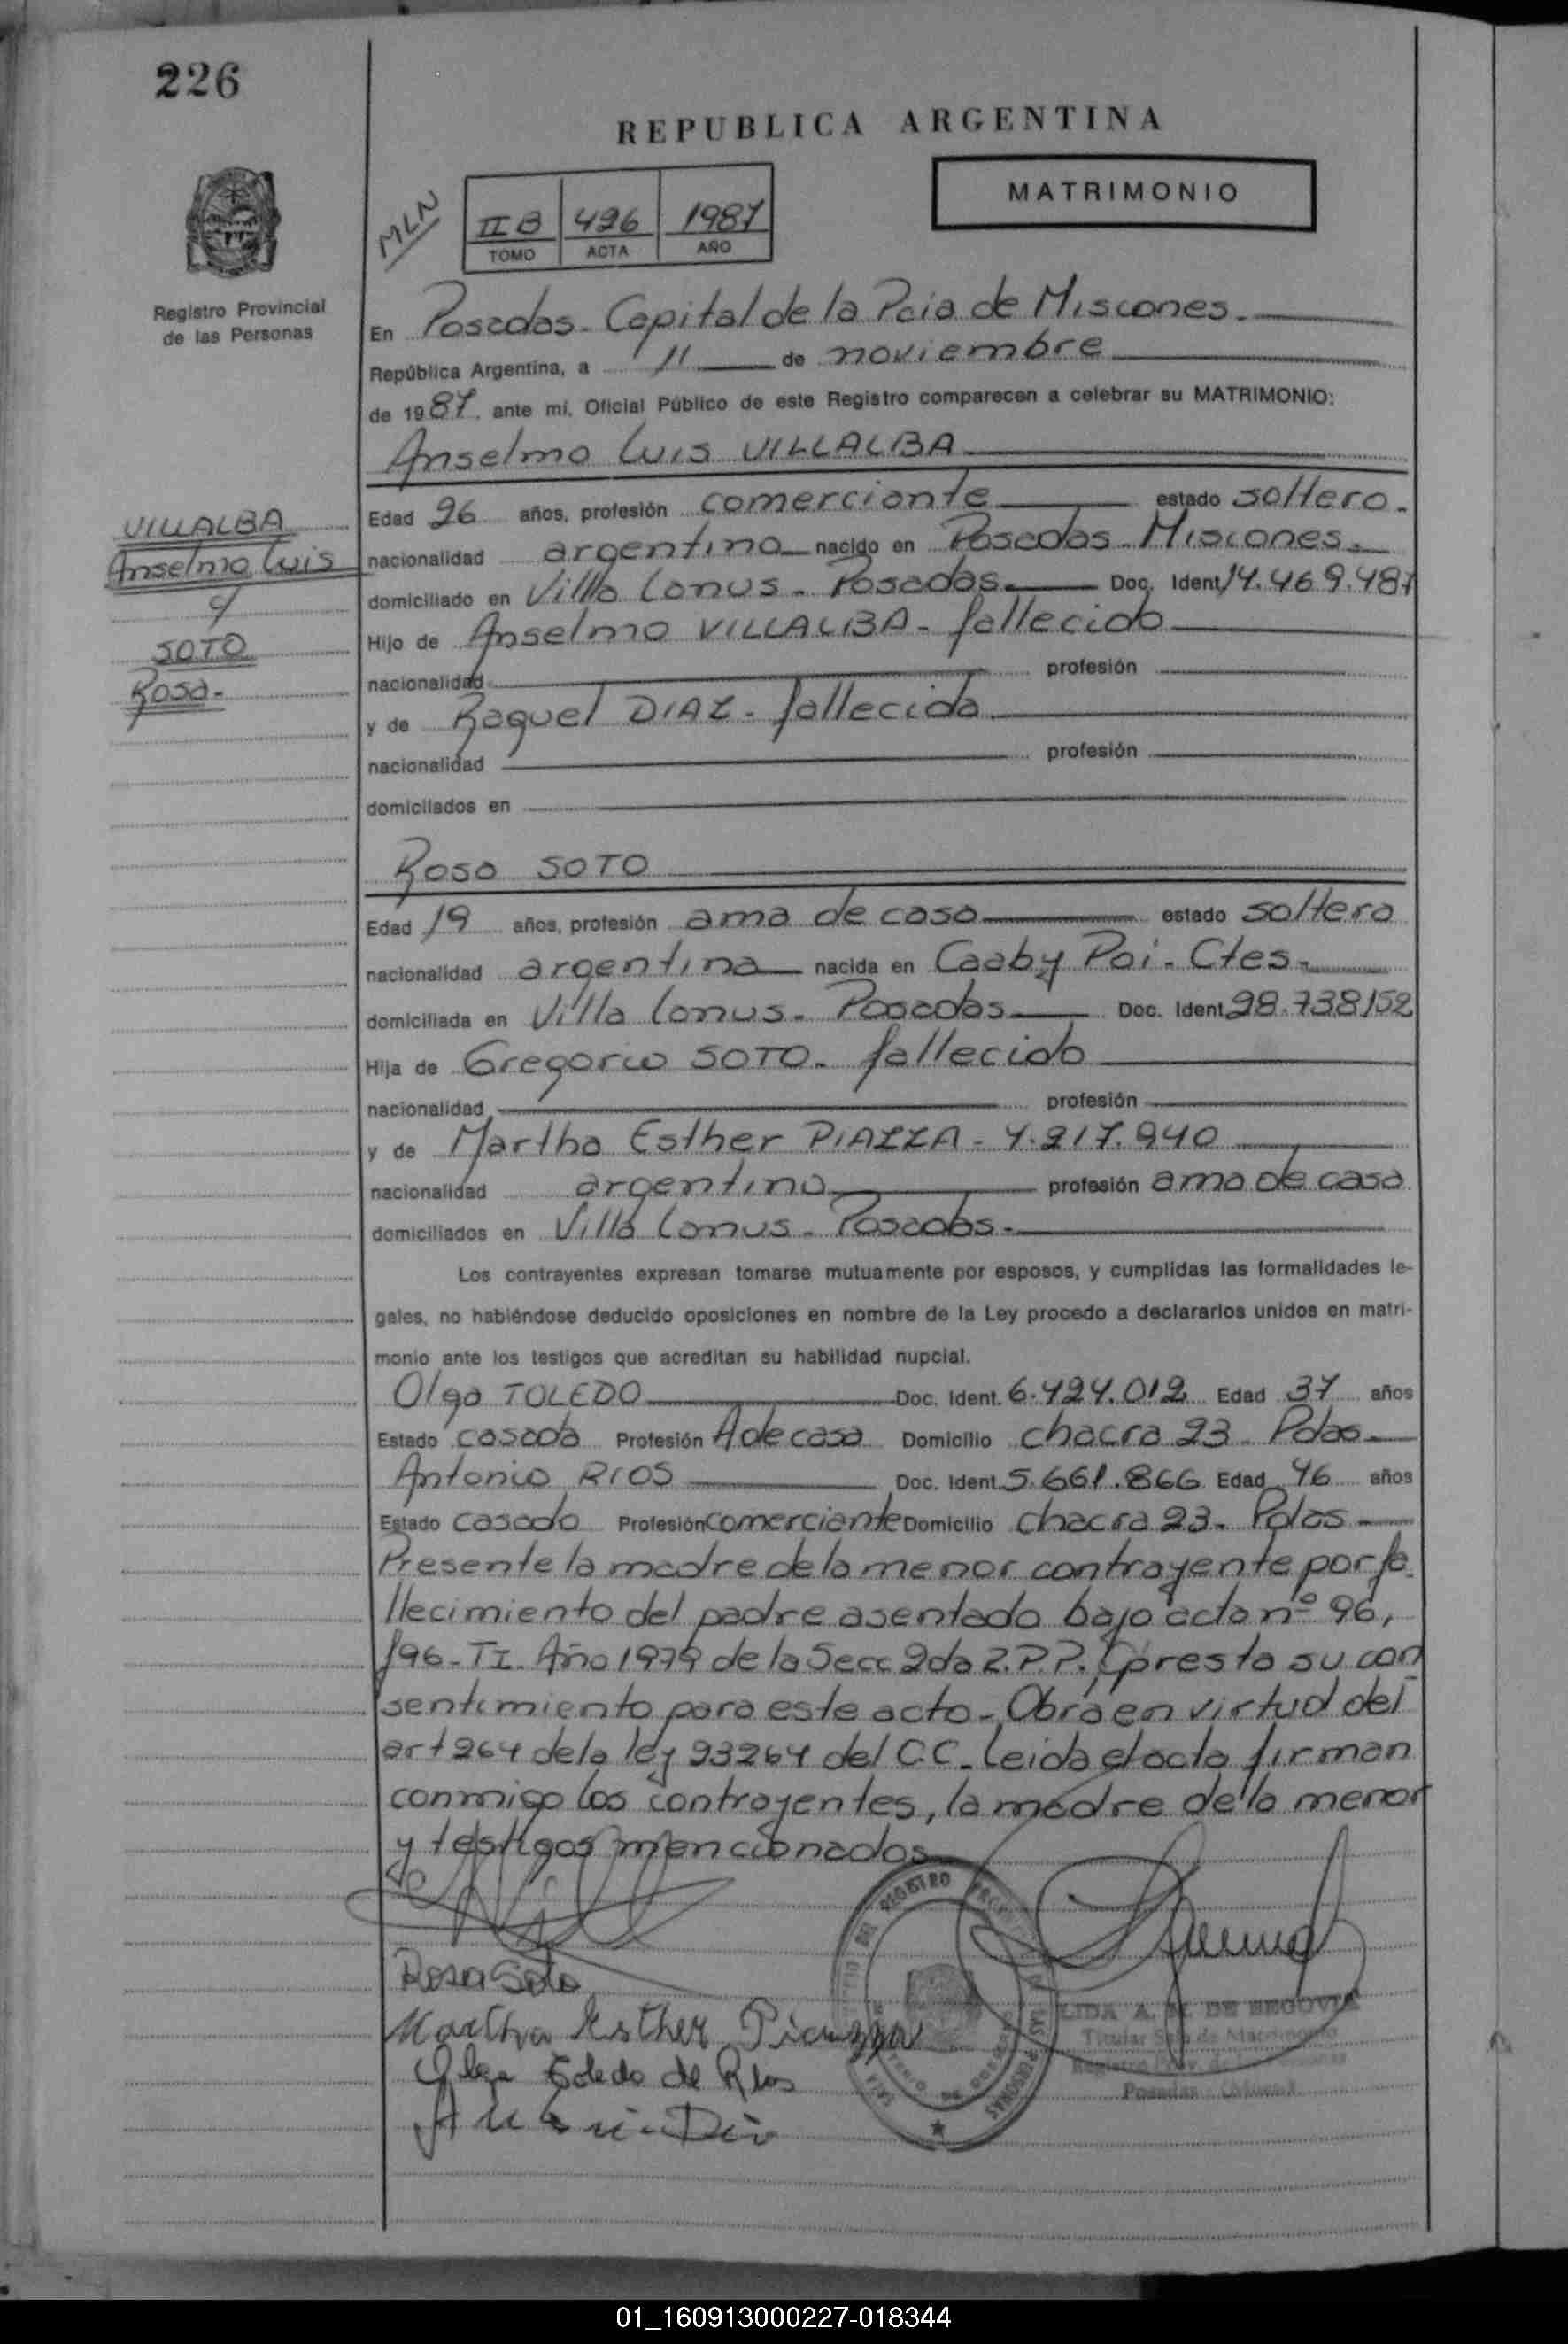 226
REPUBLICA ARGENTINA
MATRIMONIO
MLN
II B 426 1987
TOMO ACTA AÑO
Registro Provincial
de las Personas
En Posadas - Capital de la Pcia de Misiones.
República Argentina, a 11 de noviembre
de 1987, ante mí, Oficial Público de este Registro comparecen a celebrar su MATRIMONIO:
Anselmo Luis VILLALBA
VILLALBA
Anselmo Luis
c/
SOTO
Rosa.-
Edad 26 años, profesión comerciante estado soltero.
nacionalidad argentino nacido en Posadas - Misiones.
domiciliado en Villa Lanus - Posadas. Doc. Ident. 14.469.487
Hijo de Anselmo VILLALBA - fallecido
nacionalidad profesión
y de Raquel DIAZ - fallecida
nacionalidad profesión
domiciliados en
Rosa SOTO
Edad 19 años, profesión ama de casa estado soltera
nacionalidad argentina nacida en Caaby Poi - Ctes -
domiciliada en Villa Lanus - Posadas Doc. Ident. 28.738152
Hija de Gregorio SOTO - fallecido
nacionalidad profesión
y de Martha Esther PIAZZA - 4.217.940
nacionalidad argentina profesión ama de casa
domiciliados en Villa Lanus - Posadas -
Los contrayentes expresan tomarse mutuamente por esposos, y cumplidas las formalidades le-
gales, no habiéndose deducido oposiciones en nombre de la Ley procedo a declararlos unidos en matri-
monio ante los testigos que acreditan su habilidad nupcial.
Olga TOLEDO Doc. Ident. 6.424.012 Edad 37 años
Estado casada Profesión A de casa Domicilio chacra 23 - Pdas -
Antonio RIOS Doc. Ident. 5.661.866 Edad 46 años
Estado casado Profesión comerciante Domicilio chacra 23 - Pdas -
Presente la madre de la menor contrayente por fa
llecimiento del padre asentado bajo acta nº 96,
f96 - TI - Año 1979 de la Secc 2da presta su con
sentimiento para este acto - Obra en virtud del
art 264 de la ley 23264 del C.C - Leida el acta firman
conmigo los contrayentes, la madre de la menor
y testigos mencionados
Rosa Soto
Martha Esther Piazza
Olga Toledo de Rios
LIDA A. M. DE SEGOVIA
Titular Sala de Matrimonio
Posadas (Mnes.)
01_160913000227-018344